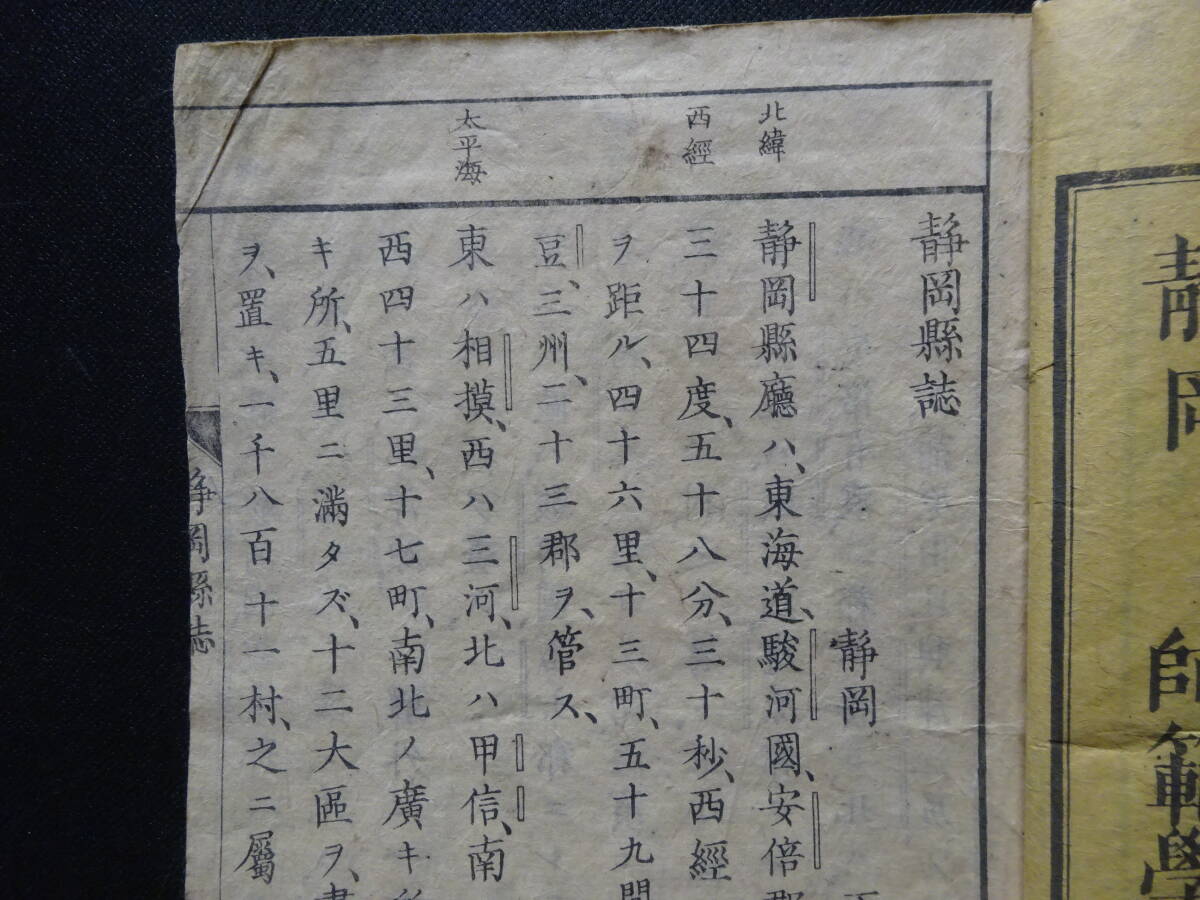 靜岡
師範學
北緯
西經
太平海
静岡縣誌
静岡
静岡縣廳ハ、東海道、駿河國、安倍郡
三十四度、五十八分、三十秒、西經
ヲ距ル、四十六里、十三町、五十九間
豆、三州、二十三郡ヲ、管ス、
東ハ相摸、西ハ三河、北ハ甲信、南
西四十三里、十七町、南北ノ廣キ所
キ所、五里ニ滿タズ、十二大區ヲ、畫
ヲ、置キ、一千八百十一村、之ニ屬
静岡縣誌